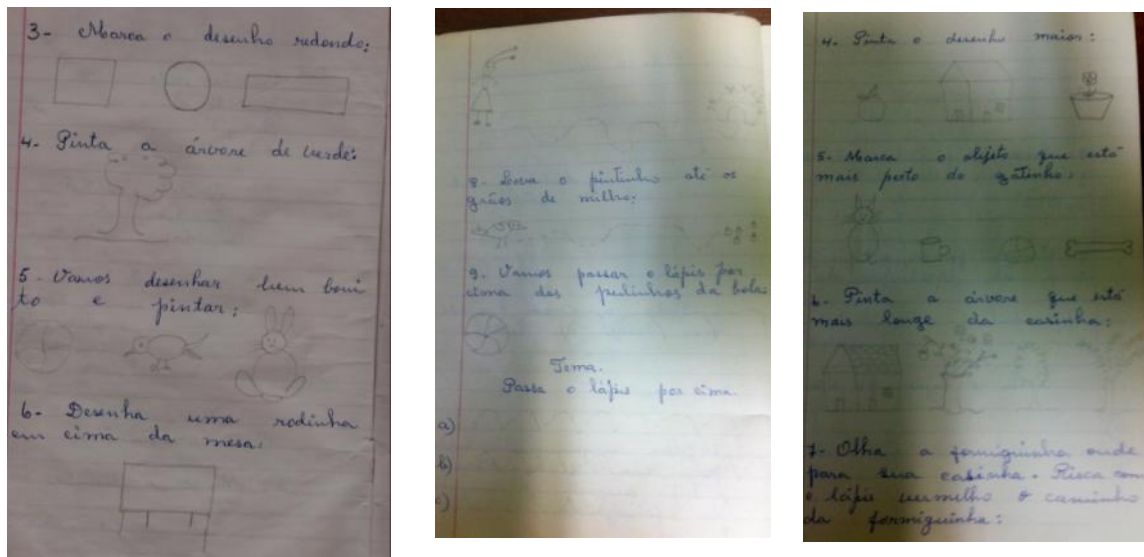 3- Marca o desenho redondo:
4- Pinta a árvore de verde:
5- Vamos desenhar bem boni
to e pintar:
6- Desenha uma rodinha
em cima da mesa:
8- Leva o pintinho até os
grãos de milho:
9- Vamos passar o lápis por
cima dos pulinhos da bola:
Tema.
Passa o lápis por cima.
a)
b)
c)
4- Pinta o desenho maior:
5- Marca o objeto que está
mais perto do gatinho:
6- Pinta a árvore que está
mais longe da casinha:
7- Olha a formiguinha onde
para sua casinha. Risca com
o lápis vermelho o caminho
da formiguinha: